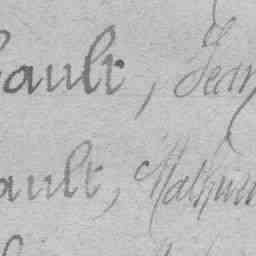 ault, Jean
ault, Mathurin